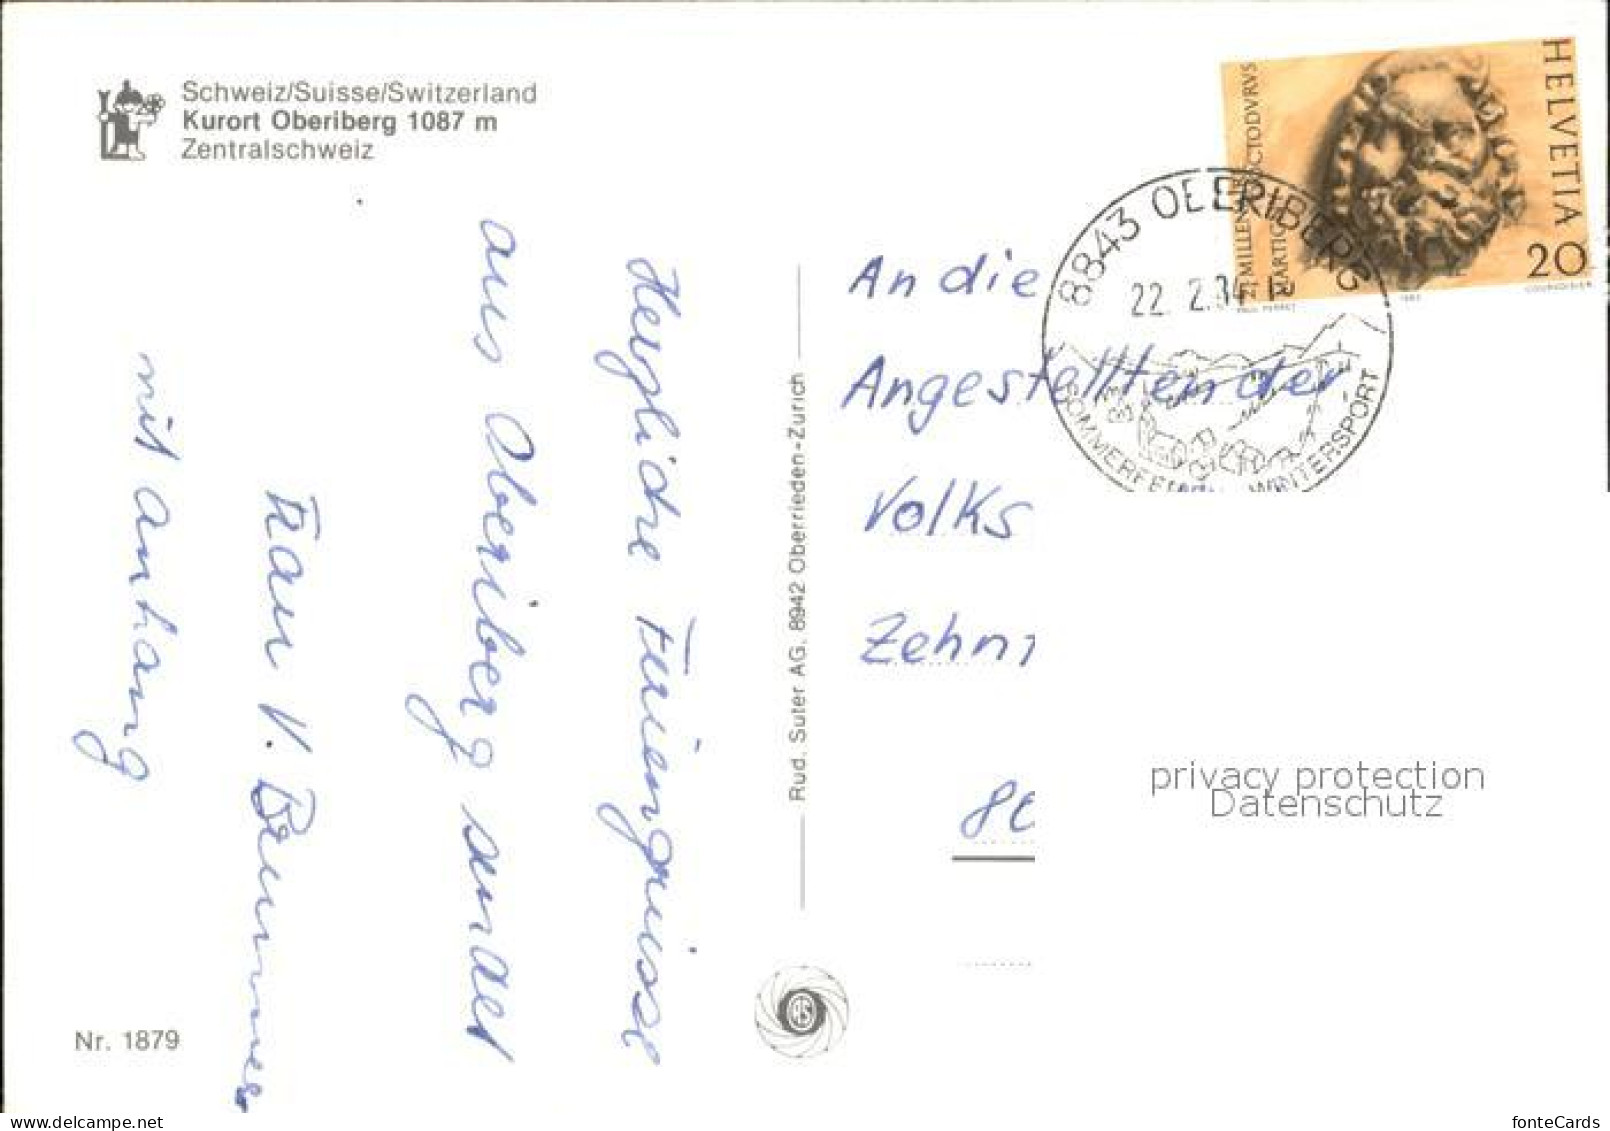 Schweiz/Suisse/Switzerland
Kurort Oberiberg 1087 m
Zentralschweiz
Herzliche Feriengrüsse
aus Oberiberg sendet
Frau V. Brunner
mit anhang
Nr. 1879
Rud. Suter AG. 8942 Oberrieden-Zürich
HELVETIA
20
COURVOISIER
8843 OBERIBERG
22. 2.84
WINTERSPORT
An die
Angestellten der
Volks
Zehn
80
privacy protection
Datenschutz
delcampe.net
fonteCards